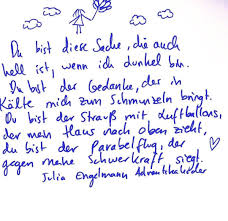 Du bist diese Sache, die auch
hell ist, wenn ich dunkel bin.
Du bist der Gedanke, der in
Kälte mich zum Schmunzeln bringt.
Du bist der Strauß mit Luftballons,
der mein Haus nach oben zieht,
du bist der Parabelflug, der
gegen meine Schwerkraft siegt.
Julia Engelmann